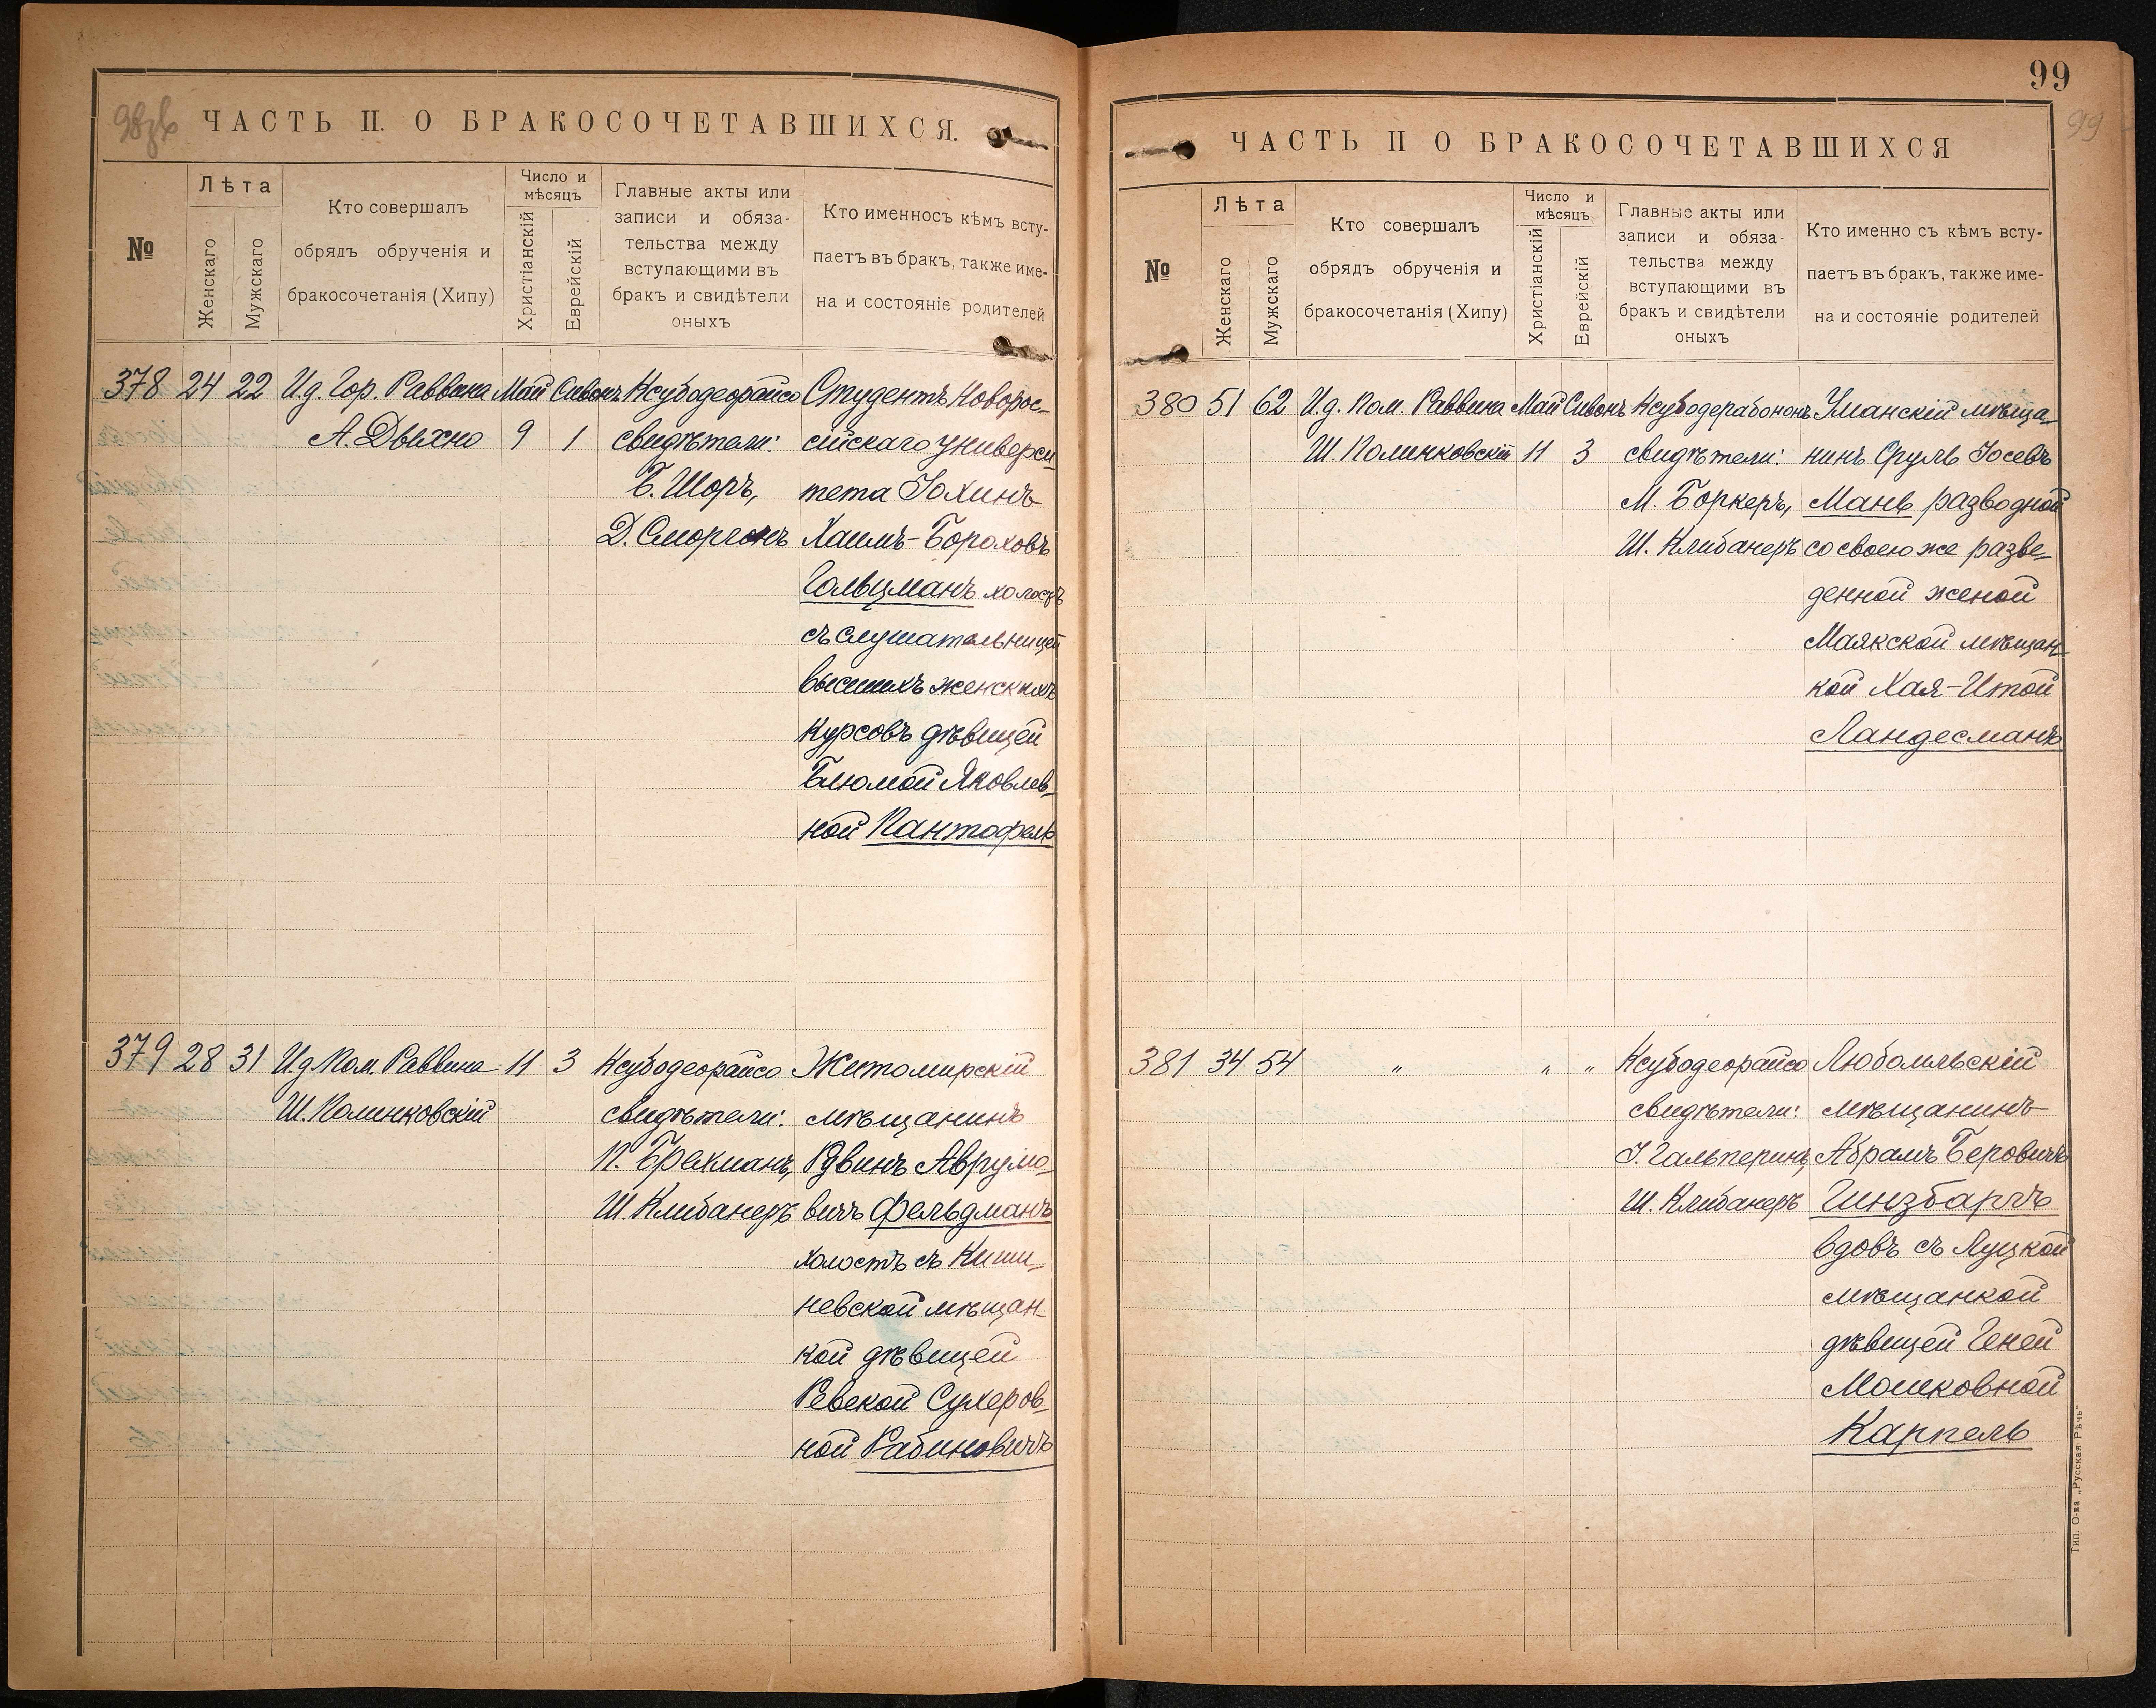 98зв
ЧАСТЬ II. О БРАКОСОЧЕТАВШИХСЯ.
№
Лѣта
Женскаго
Мужскаго
Кто совершалъ
обрядъ обрученія и
бракосочетанія (Хипу)
Число и
мѣсяцъ
Христіанскій
Еврейскій
Главные акты или
записи и обяза-
тельства между
вступающими въ
бракъ и свидѣтели
оныхъ
Кто именносъ кѣмъ всту-
паетъ въ бракъ, также име-
на и состояніе родителей
378 24 22 И.д. Гор. Раввина Май Сивонъ Ксубодеорайсо Студентъ Новорос-
А. Дыхно 9 1 свидѣтели: сійскаго универси
Б. Шоръ, тета Іохинъ-
Д. Сморгонъ Хаимъ-Бороховъ
Гольцманъ холостъ
съ слушательницей
высшихъ женскихъ
курсовъ дѣвицей
Блюмой Яковлев-
ной Пантофель
379 28 31 И.д. Пом. Раввина 11 3 Ксубодеорайсо Житомирскій
Ш. Полинковскій свидѣтели: мѣщанинъ
П. Брехманъ, Рувинъ Аврумо-
Ш. Клибанеръ вичъ Фельдманъ
холостъ съ Киши-
невской мѣщан-
кой дѣвицей
Ревекой Сухеров-
ной Рабиновичъ
99
99
ЧАСТЬ II О БРАКОСОЧЕТАВШИХСЯ
№
Лѣта
Женскаго
Мужскаго
Кто совершалъ
обрядъ обрученія и
бракосочетанія (Хипу)
Число и
мѣсяцъ
Христіанскій
Еврейскій
Главные акты или
записи и обяза-
тельства между
вступающими въ
бракъ и свидѣтели
оныхъ
Кто именно съ кѣмъ всту-
паетъ въ бракъ, также име-
на и состояніе родителей
380 51 62 И.д. Пом. Раввина Май Сивонъ Ксубодерабононъ Уманскій мѣща-
Ш. Полинковскій 11 3 свидѣтели: нинъ Сруль Іосевъ
М. Боркеръ, Мань разводной
Ш. Клибанеръ со своею же разве-
денной женой
Маякской мѣщан-
кой Хая-Итой
Ландесманъ
381 34 54 " " " Ксубодеорайсо Любомльскій
свидѣтели: мѣщанинъ
І. Гальперинъ, Абрамъ Беровичъ
Ш. Клибанеръ Гинзбаргъ
вдовъ съ Луцкой
мѣщанкой
дѣвицей Геней
Мошковной
Карпель
Тип. О-ва „Русская Рѣчь"